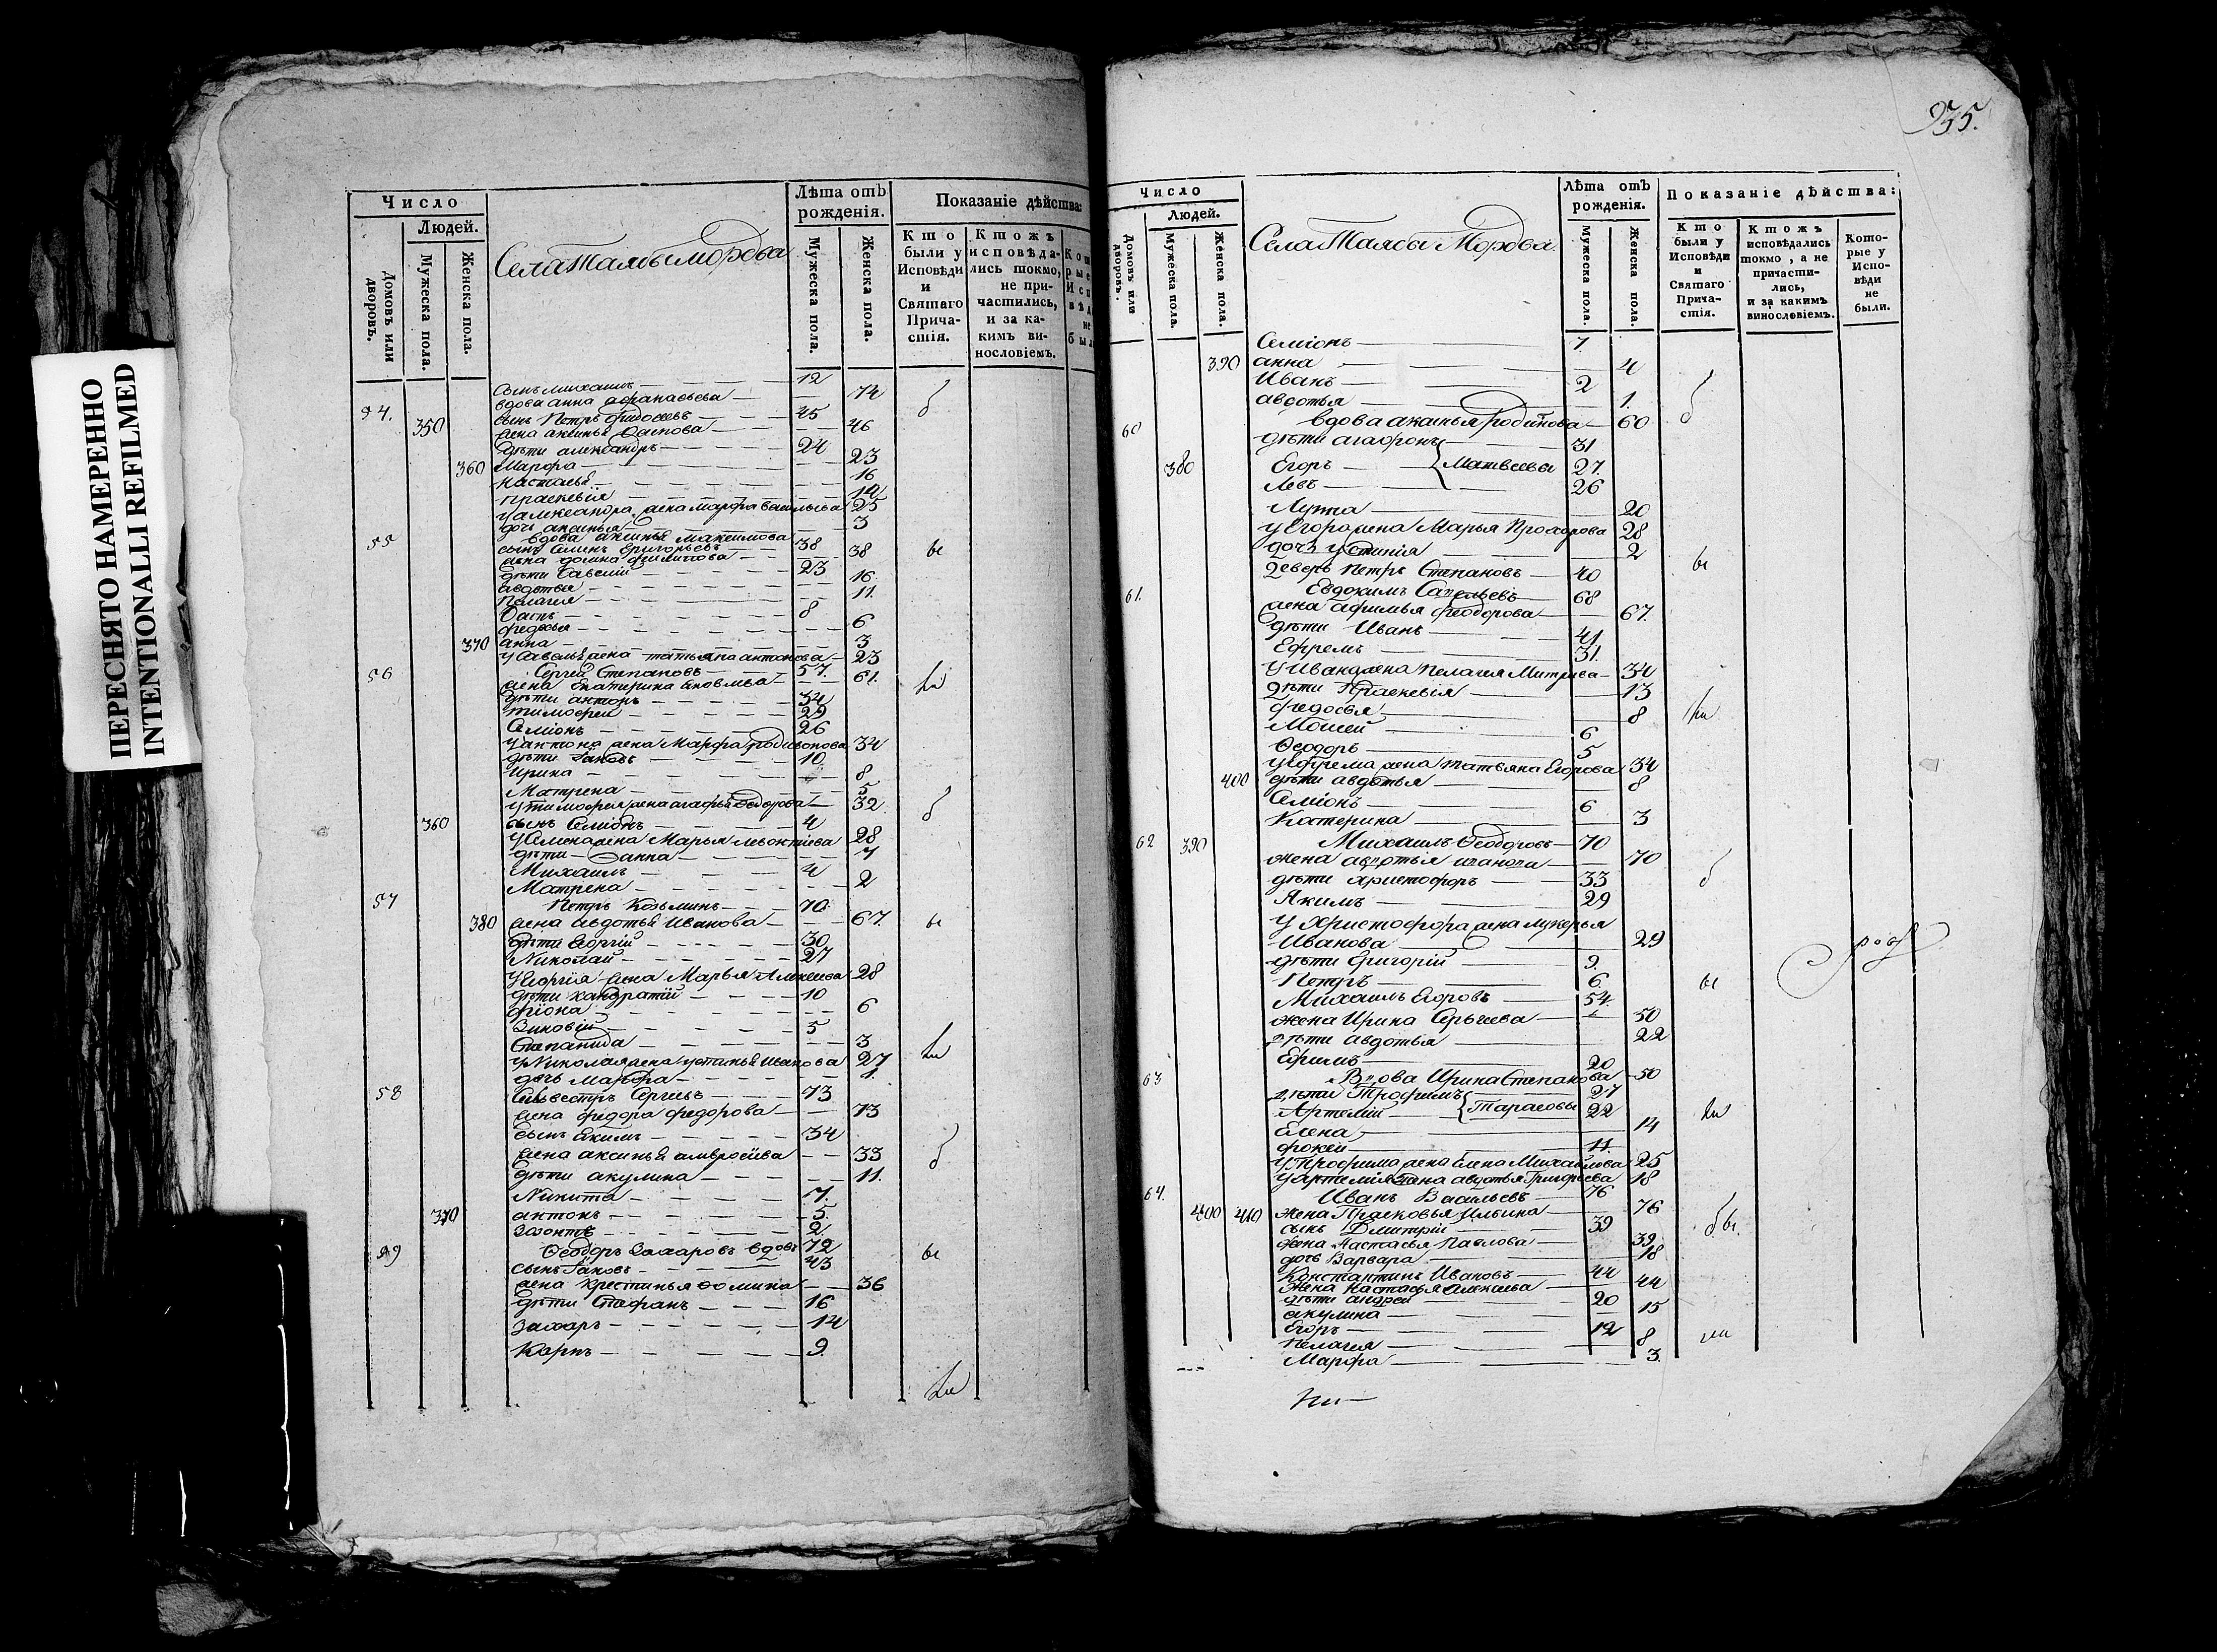 ПЕРЕСНЯТО НАМЕРЕННО
INTENTIONALLI REFILMED
Число
Людей.
Домовъ или дворовъ.
Мужеска пола.
Женска пола.
Села Таясы мордва
Лѣта отъ рожденія.
Мужеска пола.
Женска пола.
Показаніе дѣйства:
Кто были у Исповѣди и Святаго Прича-стія.
Ктожъ исповѣда-лись токмо, не при-частились, и за ка-кимъ ви-нословіемъ.
сынъ михаилъ 12
вдова анна афанасьева 74
54. сынъ Петръ 45
350 жена аксинья Осипова 46
дѣти александръ 24
360 Марфа 23
настасья 16
праскевія 14
у александра жена марфа васильева 25
дочь аксинья 3
55 вдова аксинья максимова
сынъ Семенъ Григорьевъ 38
жена домна филипова 38 бы
дѣти Савелій 23
авдотья 16
Пелагея 11
Осипъ 8
федосья 6
370 анна 3
у Савелья жена татьяна антонова 23
56 Сергей Степановъ 57
жена Екатерина Яковлева 61 ли
дѣти антонъ 34
тимофей 29
Семіонъ 26
у антона жена Марфа родивонова 34
дѣти Іаковъ 10
Ирина 8
Матрена 5
у тимофея жена агафья Ѳеодорова 32
360 сынъ Семіонъ 4
у Семена жена Марья леонтіева 28
дѣти анна 7
Михаилъ 4
Матрена 2
57 Петръ Козьминъ 70
380 жена авдотья Иванова 67 бы
дѣти Георгій 30
Николай 27
у Георгія жена Марья Алексеева 28
дѣти кандратій 10
фіона 6
Зиновій 5
Степанида 3
у Николая жена устинья иванова 27
дочь марфа 1
58 Сильвестръ Сергеевъ 73
жена федора федорова 73
сынъ Якимъ 34
жена аксинья амвросіева 33
дѣти акулина 11
Никита 7
370 антонъ 5
2
59 Ѳеодоръ Захаровъ вдовъ 72 бы
сынъ Іаковъ 43
жена крестинья фомина 36
дѣти Стефанъ 16
захаръ 14
карпъ 9
ли
935.
Число
Людей.
Домовъ или дворовъ.
Мужеска пола.
Женска пола.
Села Таясы Мордва.
Лѣта отъ рожденія.
Мужеска пола.
Женска пола.
Показаніе дѣйства:
Кто были у Исповѣди и Святаго Прича-стія.
Ктожъ исповѣдались токмо, а не причасти-лись, и за какимъ винословіемъ.
Кото-рые у Испо-вѣди не были.
Семіонъ 7
390 анна 4
Иванъ 2
авдотья 1.
60 вдова акилина родивонова 60
дѣти агафонъ 31
380 Егоръ Матвеевы 27
Левъ 26
20
у Егора жена Марья Прохорова 28
дочь устинія 2
деверь петръ Степановъ 40 бы
61. Евдокимъ Савельевъ 68
жена афимья Феодорова 67.
дѣти Иванъ 41
Ефремъ 31.
у Ивана жена пелагея Митрева 34
дѣти Праскевія 13
федосья 8
Моисей 6
Ѳеодоръ 5
у ефрема жена татьяна Егорова 34
400 дѣти авдотья 8
Семіонъ 6
Катерина 3
62 390 Михаилъ Ѳеодоровъ 70
жена авдотья иванова 70
дѣти христофоръ 33
Якимъ 29
у Христофора жена лукерья
Иванова 29
дѣти Григорій 9.
Петръ 6 бы
Михаилъ Егоровъ 54
жена Ирина Сергеева 50
дѣти авдотья 22
Ефимъ 20
63 Вдова Ирина Степанова 50
дѣти Трофимъ 27
Артемій Тарасовы 22 ли
Елена 14
фокей 11
у трофима жена Елена Михайлова 25
у артемія жена авдотья Григорьева 18
64. Иванъ Васильевъ 76
400 410 жена Прасковья ильина 76
сынъ Дмитрій 39
жена настасья Павлова 39
дочь Варвара 18
Константинъ Ивановъ 44
жена настасья алексеева 44
дѣти андрей 20
акулина 15
Егоръ 12
пелагея 8
Марфа 3.